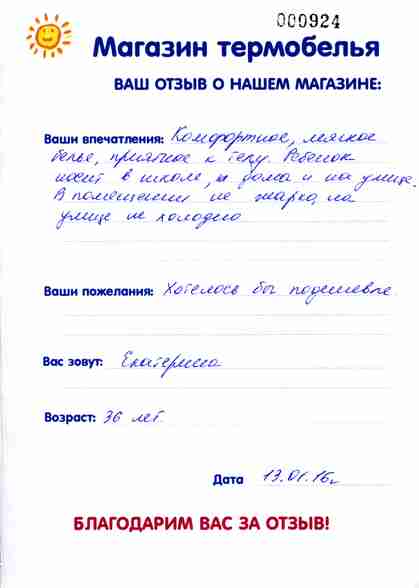 000924
Магазин термобелья
ВАШ ОТЗЫВ О НАШЕМ МАГАЗИНЕ:
Ваши впечатления: Комфортное, мягкое
белье, приятное к телу. Ребенок
носит в школе, и дома и на улице.
В помещении не жарко, на
улице не холодно
Ваши пожелания: Хотелось бы подешевле
Вас зовут: Екатерина
Возраст: 36 лет
Дата 13.01.16г.
БЛАГОДАРИМ ВАС ЗА ОТЗЫВ!